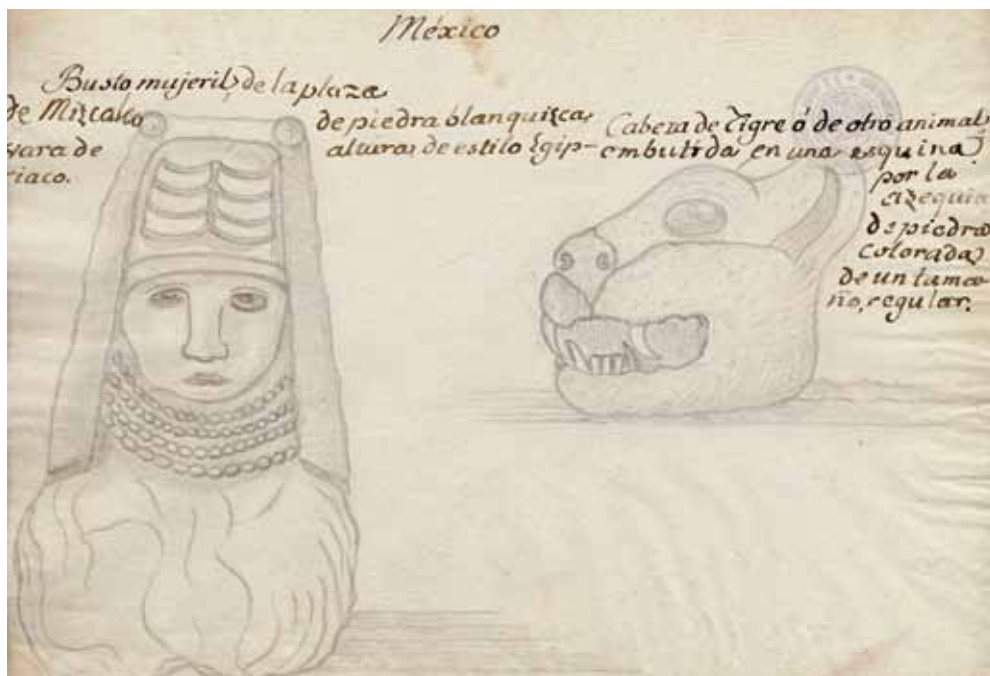 México
Busto mujeril, de la plaza
de Mizcalco de piedra blanquizca,
vara de altura, de estilo Egip-
ciaco.
Cabeza de Tigre ó de otro animal,
embutida en una esquina,
por la
azequia
de piedra
colorada,
de un tama-
ño, regular.